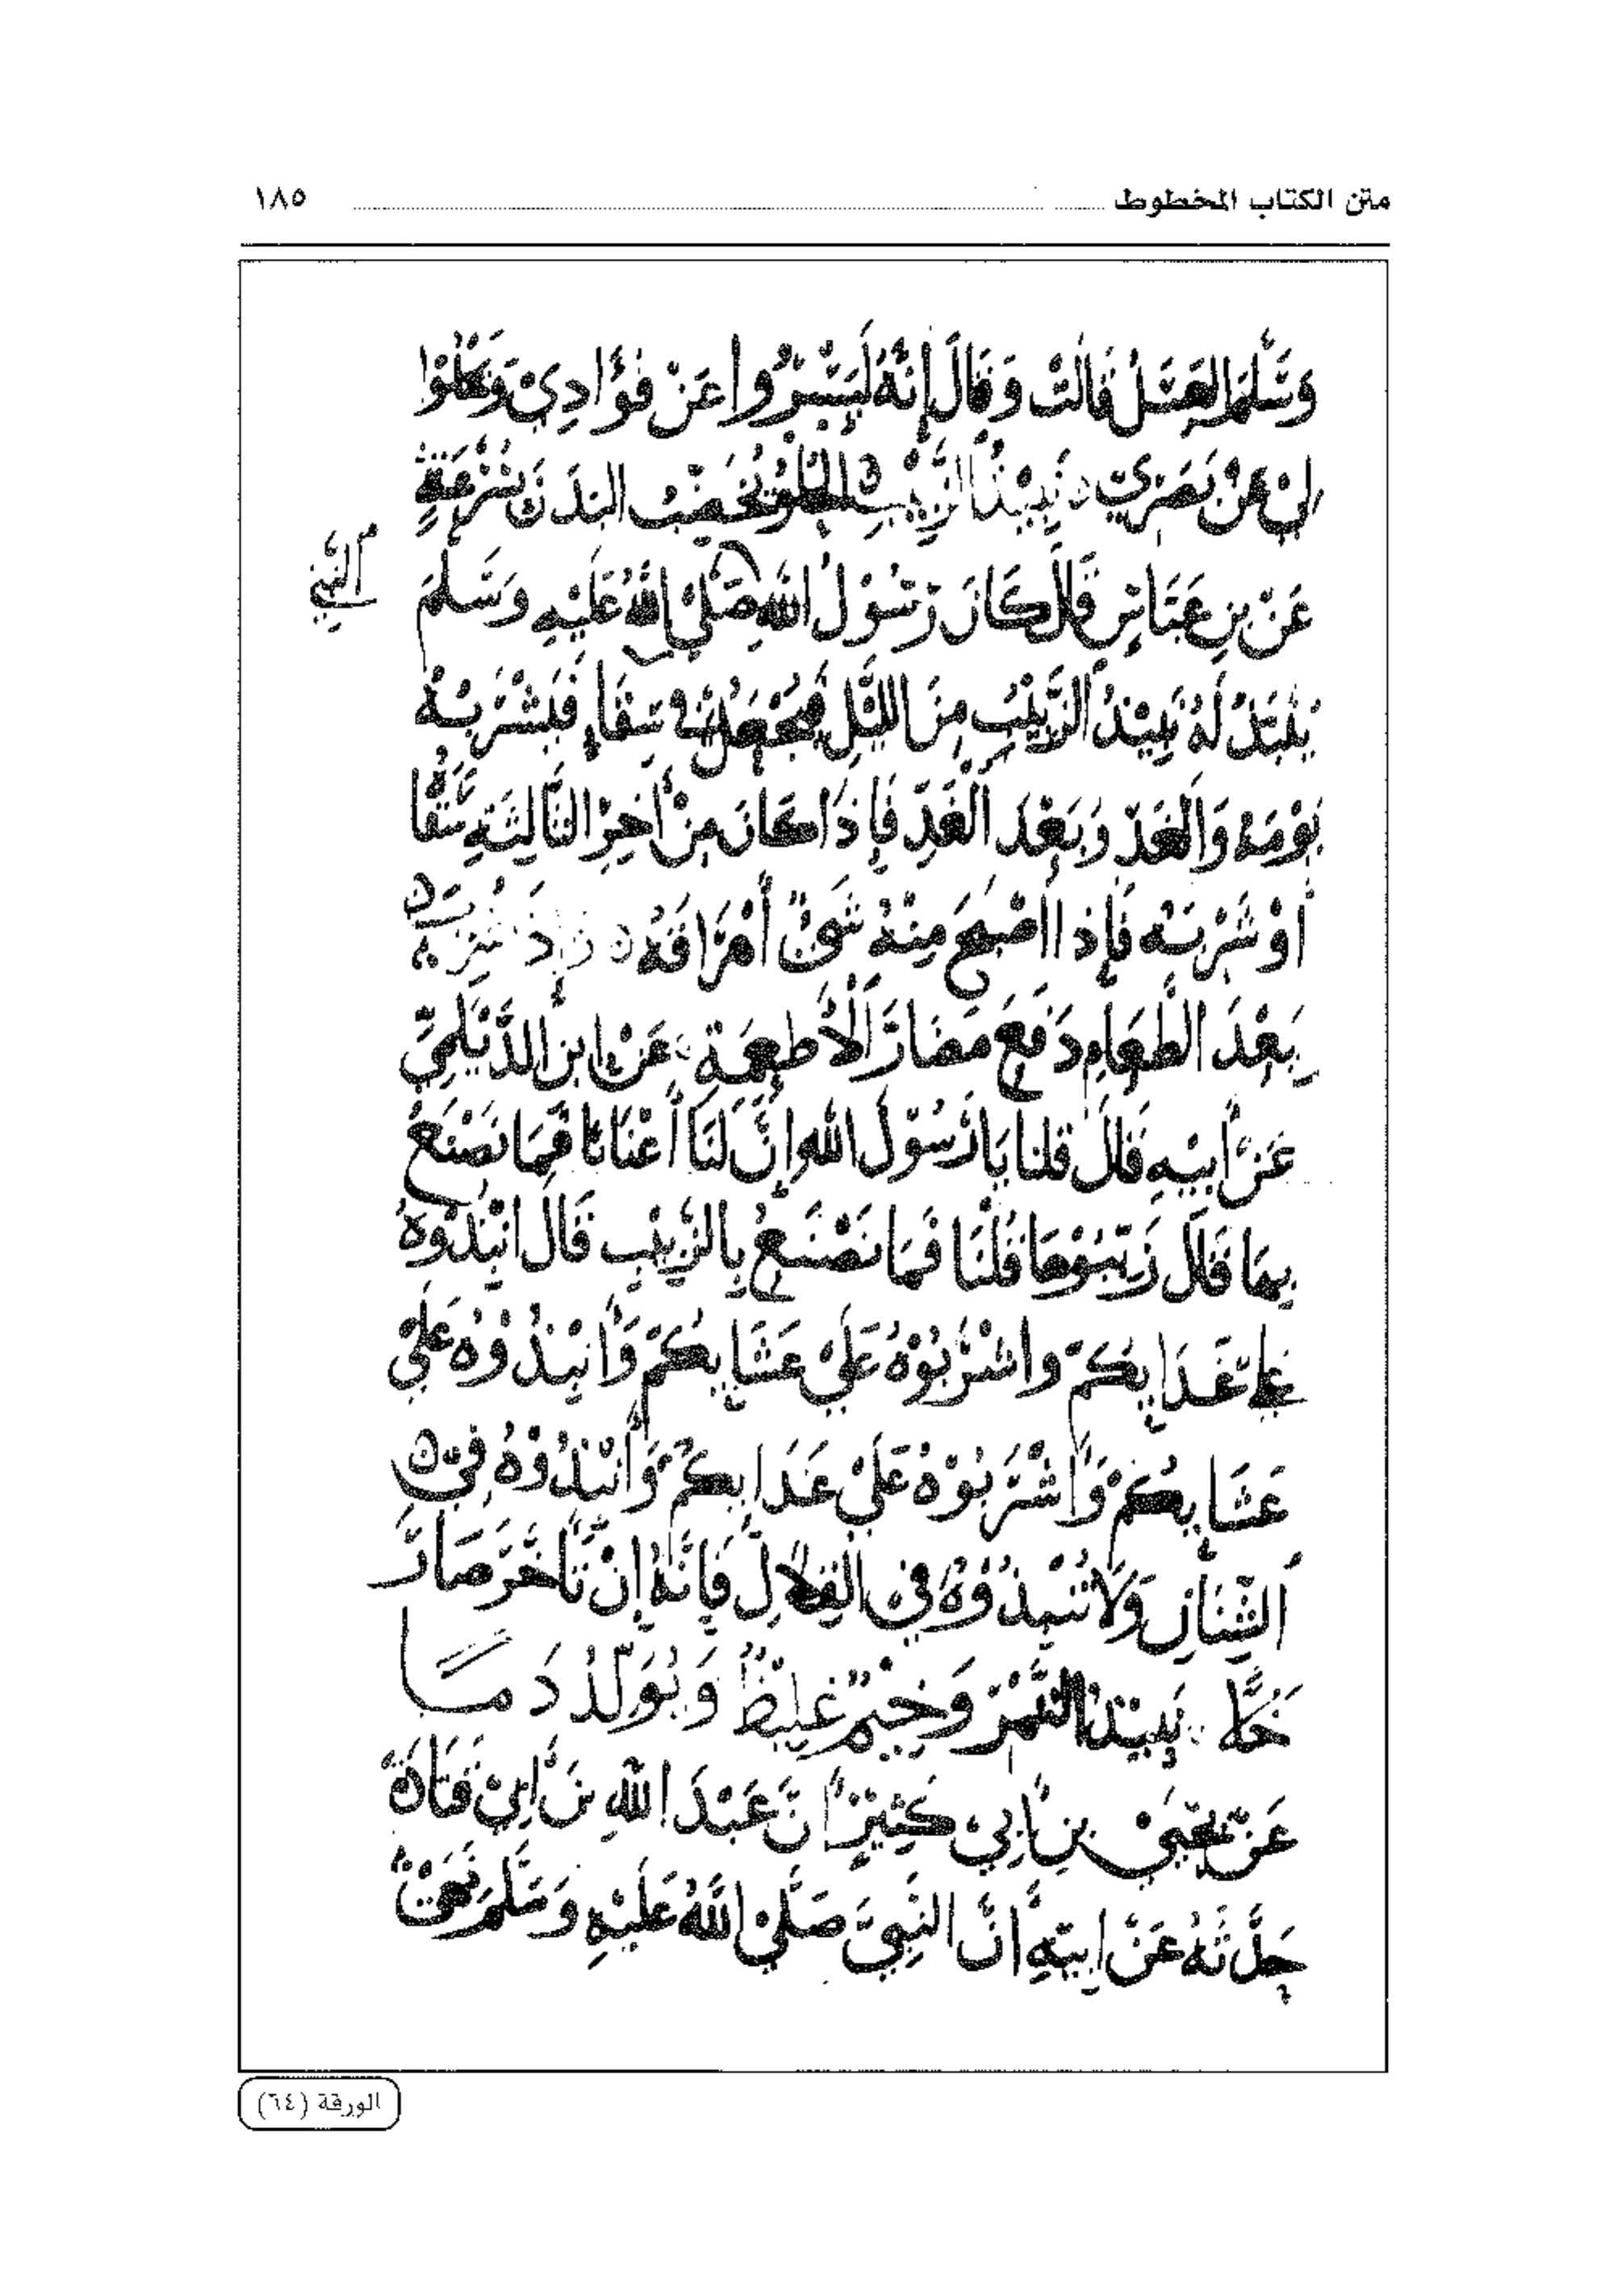 متن الكتاب المخطوط ١٨٥
وَسَلَّمَ العَسَلُ قَالَتْ وَقَالَ إِنَّهُ لَيَسْرُوا عَنْ فُؤَادِيْ وَيَجْلُوْا
لِيْ عَنْ بَصَرِيْ نَبِيْذُ الزَّبِيْبِ الحُلْوِ يُخَصِّبُ البَدَنَ بِسُرْعَةٍ
عَنْ بنِ عَبَّاسٍ قَالَ كَانَ رَسُوْلُ اللهِ صَلَّى اللهُ عَلَيْهِ وَسَلَّمَ
النبي
يُنْبَذُ لَهُ نَبِيْذُ الزَّبِيْبِ مِنَ اللَّيْلِ فَيُجْعَلُ فِي سِقَاءٍ فَيَشْرَبُهُ
يَوْمَهُ وَالْغَدَ وَبَعْدَ الْغَدِ فَإِذَا كَانَ مِنْ أَخِرِ الثَّالِثَةِ سَقَاهُ
أَوْ شَرِبَهُ فَإِذَا اصْبَحَ مِنْهُ شَيْءٌ أَهْرَاقَهُ
بَعْدَ الطَّعَامِ دَفَعَ مَضَارَّ الْأَطْعِمَةِ عَنْ ابنِ الدَّيْلَمِيِّ
عَنْ أَبِيْهِ قَالَ قلنا يَا رَسُوْلَ اللهِ إِنَّ لَنَا أَعْنَابًا فَمَا نَصْنَعُ
بِهَا قَالَ زَبِّبُوْهَا قُلْنَا فَمَا نَصْنَعُ بِالزَّبِيْبِ قَالَ انْبِذُوْهُ
عَلَى غَدَايِكُمْ وَاشْرَبُوْهُ عَلَى عَشَايِكُمْ وَأَنْبِذُوْهُ عَلَى
عَشَايِكُمْ وَاشْرَبُوْهُ عَلَى غَدَايِكُمْ وَانْبِذُوْهُ فِي
الشِّنَانِ وَلَا تَنْبِذُوْهُ فِي القِلَالِ فَإِنَّهُ إِنْ تَأَخَّرَ صَارَ
خَلًّا نَبِيْذُ التَّمْرِ وَخِيْمٌ غَلِيْظٌ وَيُوَلِّدُ دَمًا
عَنْ يَحْيَى بنِ أَبِي كَثِيْرٍ أَنَّ عَبْدَ اللهِ بنَ أَبِيْ قَتَادَةَ
حَدَّثَهُ عَنْ ابِيْهِ انَّ النَّبِيَّ صَلَّى اللهُ عَلَيْهِ وَسَلَّمَ نَهَى
الورقة (٦٤)